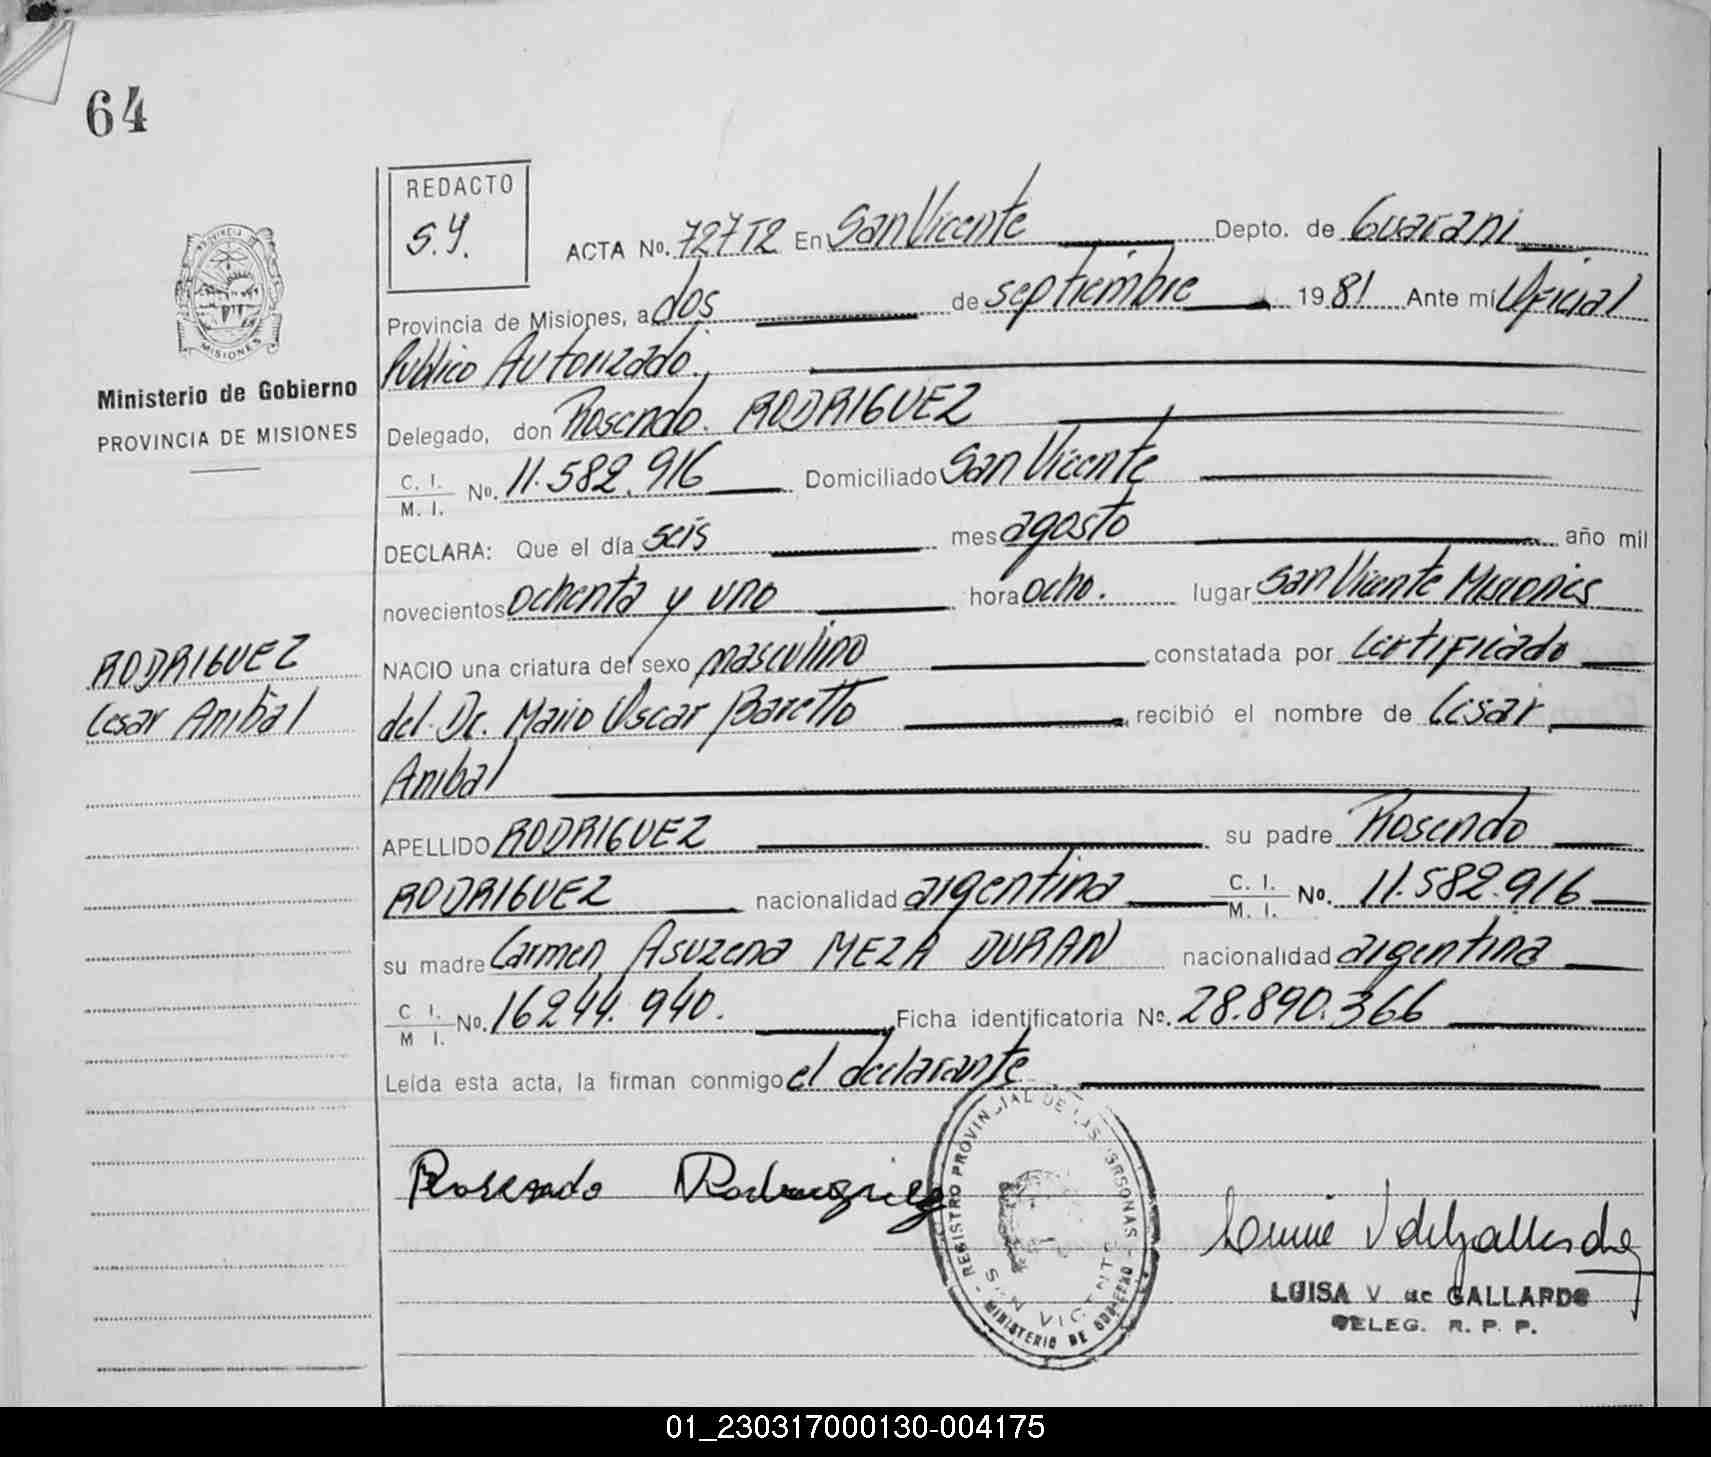 64
REDACTO
S.Y.
ACTA No. 727T2 En San Vicente Depto. de Guarani
Provincia de Misiones, a dos de septiembre 1981 Ante mi Oficial
Publico Autorizado.
Delegado, don Rosendo. RODRIGUEZ
C. I.
M. I. No. 11.582.916 Domiciliado San Vicente
DECLARA: Que el día seis mes agosto año mil
novecientos ochenta y uno hora ocho. lugar San Vicente Misiones
NACIO una criatura del sexo masculino constatada por Certificado
del Dr. Mario Oscar Baretto recibió el nombre de Cesar
Anibal
APELLIDO RODRIGUEZ su padre Rosendo
RODRIGUEZ nacionalidad argentina C. I.
M. I. No. 11.582.916
su madre Carmen Asuzena MEZA DURAN nacionalidad argentina
C I.
M I. No. 16244.940. Ficha identificatoria No. 28.890.366
Leída esta acta, la firman conmigo el declarante
PROVINCIA DE
MISIONES
Ministerio de Gobierno
PROVINCIA DE MISIONES
RODRIGUEZ
Cesar Anibal
Rosendo Rodriguez
REGISTRO PROVINCIAL DE LAS PERSONAS
SAN VICENTE
MINISTERIO DE GOBIERNO
LUISA V de GALLARDO
DELEG. R. P. P.
01_230317000130-004175